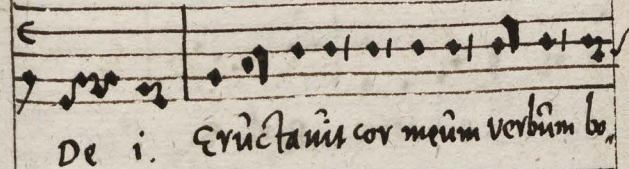 De i. Eructauit cor meum verbum bo„